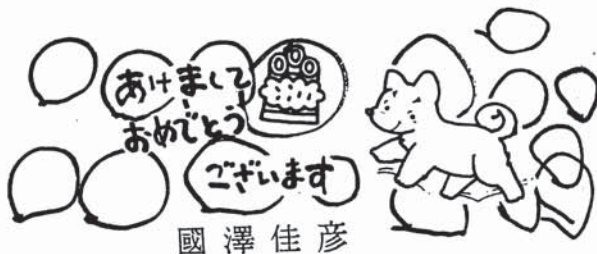 あけまして
おめでとう
ございます
國澤佳彦